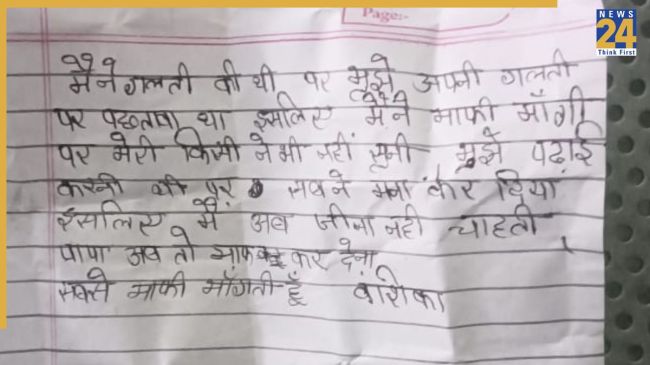 Page:-
NEWS
24
Think First
मैंने गलती की थी पर मुझे अपनी गलती
पर पछतावा था इसलिए मैंने माफी माँगी
पर मेरी किसी ने भी नहीं सुनी मुझे पढ़ाई
करनी थी पर सबने मना कर दिया
इसलिए मैं अब जीना नहीं चाहती
पापा अब तो माफ कर देना
सबसे माफी माँगती हूँ वंशिका